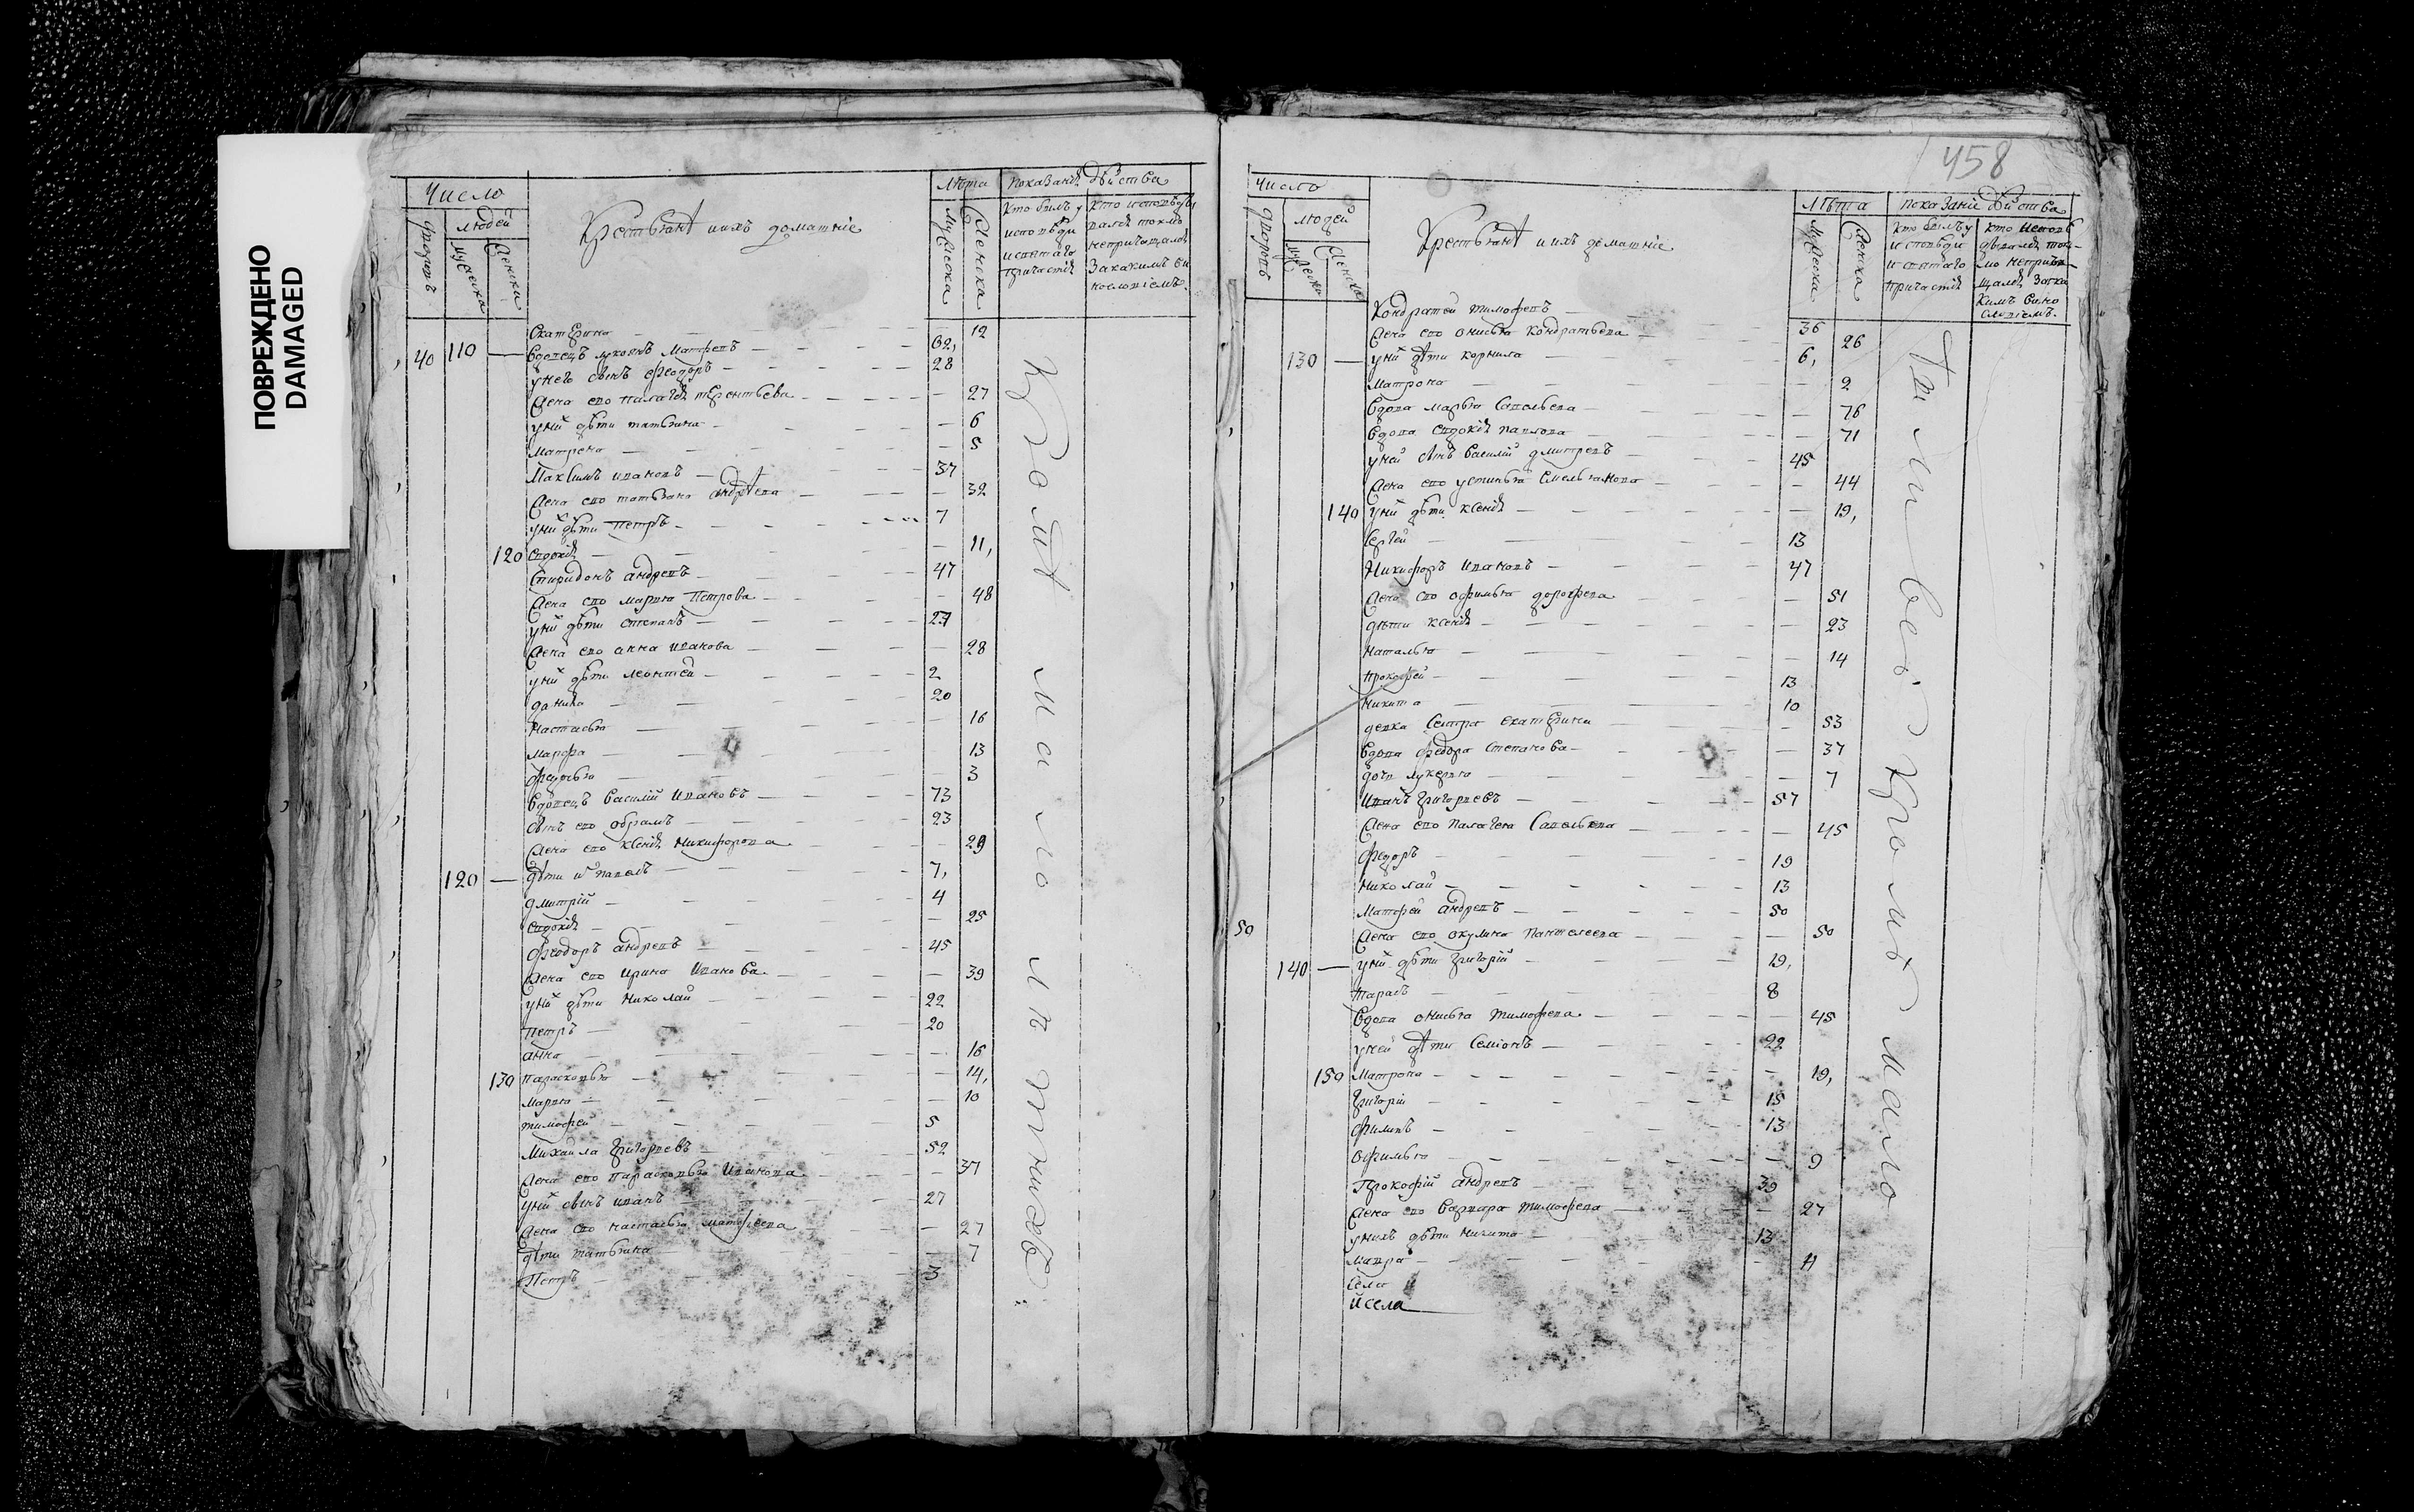 ПОВРЕЖДЕНО
DAMAGED
Число
людей
дворовъ
мужеска
женска
Крестьянѣ и ихъ домашніе
Лѣта
мужеска
женска
показаніе дѣйства
Кто былъ у
исповѣди
и святаго
причастія
Кто исповѣды
вался токмо
непричащался
За какимъ ви
нословіемъ
Екатерина 12
40 110 вдовецъ лукоянъ Матфеевъ 62,
у него сынъ Феодоръ 28
Жена ево палагея терентьева 27
у них дѣти татьяна 6
Матрона 5
Максимъ ивановъ 37
Жена ево татьяна андрѣева 32
у них дѣти Петръ 7
120 евдокія 11,
Спиридонъ андреевъ 47
Жена ево марина Петрова 48
у них дѣти степанъ 27
Жена ево анна иванова 28
у них дѣти леонтей 2
данила 20
Настасья 16
Марфа 13
федосья 3
вдовецъ василий Ивановъ 73
сынъ ево абрамъ 23
Жена ево ксенія Никифорова 29
120 дѣти их павелъ 7,
дмитрій 4
евдокія 25
Феодоръ андреевъ 45
Жена ево Ирина Иванова 39
у них дѣти николай 22
петръ 20
анна 16
130 парасковья 14,
Марина 10
тимофей 5
Михаила Григорьевъ 52
Жена ево парасковья Иванова 37
у них сынъ иванъ 27
Жена ево настасья матфеева 27
дѣти татьяна 7
Петръ 3
458
Число
дворовъ
людей
мужеска
женска
Крестьянѣ и ихъ домашніе
Лѣта
мужеска
женска
показаніе дѣйства
Кто былъ у
исповѣди
и святаго
причастія
Кто исповѣ
дывался ток-
мо неприча-
щался За ка
кимъ вино
словіемъ.
Кондратей тимофеевъ 36
Жена ево анисья Кондратьева 26
130 у них дѣти корнила 6,
матрона 2
вдова марья Савельева 76
вдова евдокія павлова 71
у ней сынъ василий дмитреевъ 45
Жена ево устинья Емельянова 44
140 у них дѣти ксенія 19,
Сергей 13
Никифоръ Ивановъ 47
Жена ево офимья дорофеева 51
дѣти ксенія 23
Наталья 14
прокофей 13
Никита 10
девка сестра екатерина 53
вдова Федора Степанова 37
дочь лукерья 7
Иванъ Григорьевъ 57
Жена ево палагея Савельева 45
Федоръ 19
Николай 13
Матфей андреевъ 50
50 Жена ево окулина пантелеева 50
140 у них дѣти Григорій 19,
тарасъ 8
вдова анисья тимофеева 45
у ней дѣти Семіонъ 22
150 Матрона 19,
Григорій 15
Филипъ 13
Офимья 9
Прокофій андреевъ 39
Жена ево варвара тимофеева 27
у нихъ дѣти никита 13
мавра 11
села
И села